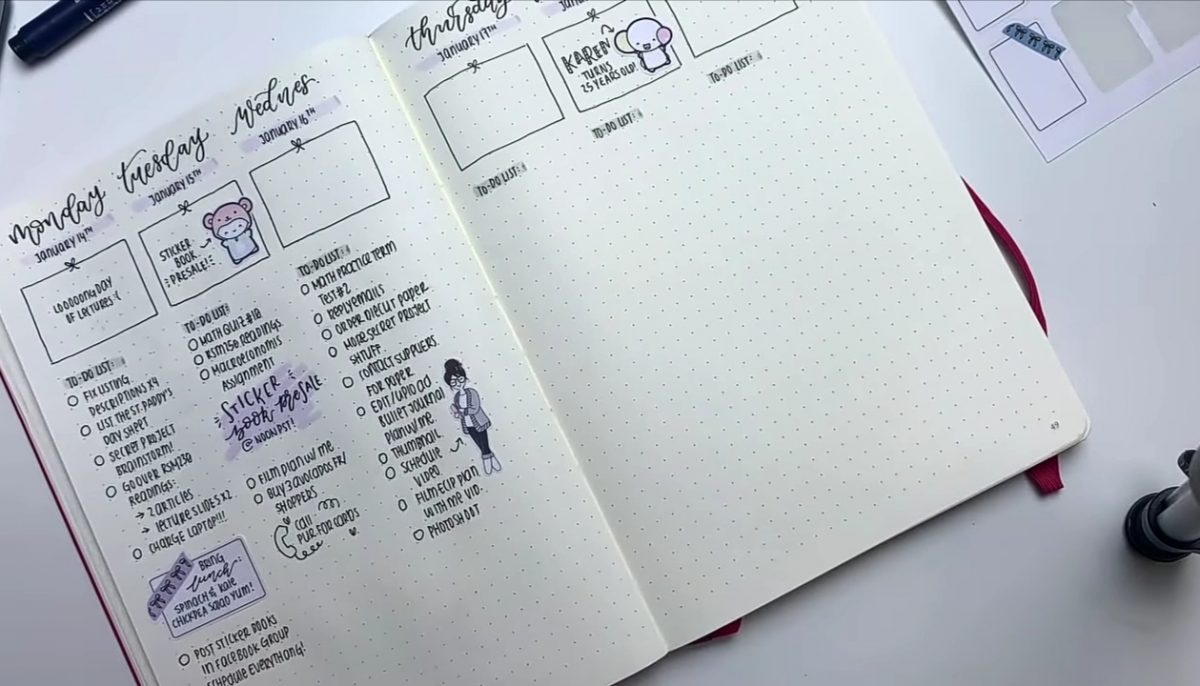 monday
January 14TH
LOOOOONG DAY
OF LECTURES :(
TO-DO LIST:
FIX LISTING
DESCRIPTIONS X4
LIST THE ST. PADDY'S
DAY SHEET
SECRET PROJECT
BRAINSTORM!
GO OVER RSM230
READINGS:
→ 2 ARTICLES
→ LECTURE SLIDES X2
CHARGE LAPTOP!!!
BRING
lunch:
SPINACH & KALE
CHICKPEA SALAD YUM!
POST STICKER BOOKS
IN FACEBOOK GROUP
SCHEDULE EVERYTHANG!
tuesday
January 15TH
STICKER
BOOK
PRESALE!
TO-DO LIST:
MATH QUIZ #10
RSM250 READINGS
MACROECONOMICS
ASSIGNMENT
STICKER
book presale
@ NOON PST!
FILM PLAN W/ ME
BUY 3 AVOCADOS FR/
SHOPPERS
CALL
PUR FOR CARDS
wednes
January 16TH
TO-DO LIST:
MATH PRACTICE TERM
TEST #2
REPLY EMAILS
ORDER DIECUT PAPER
MORE SECRET PROJECT
SHTUFF
CONTACT SUPPLIERS
FOR PAPER
EDIT/UPLOAD
BULLET JOURNAL
PLAN W/ ME
THUMBNAIL
SCHEDULE
VIDEO
FILM ECLP PLAN
WITH ME VID.
PHOTOSHOOT
thursday
January 17TH
TO-DO LIST:
KAREN
TURNS
25 YEARS OLD!
TO-DO LIST:
TO-DO LIST:
49